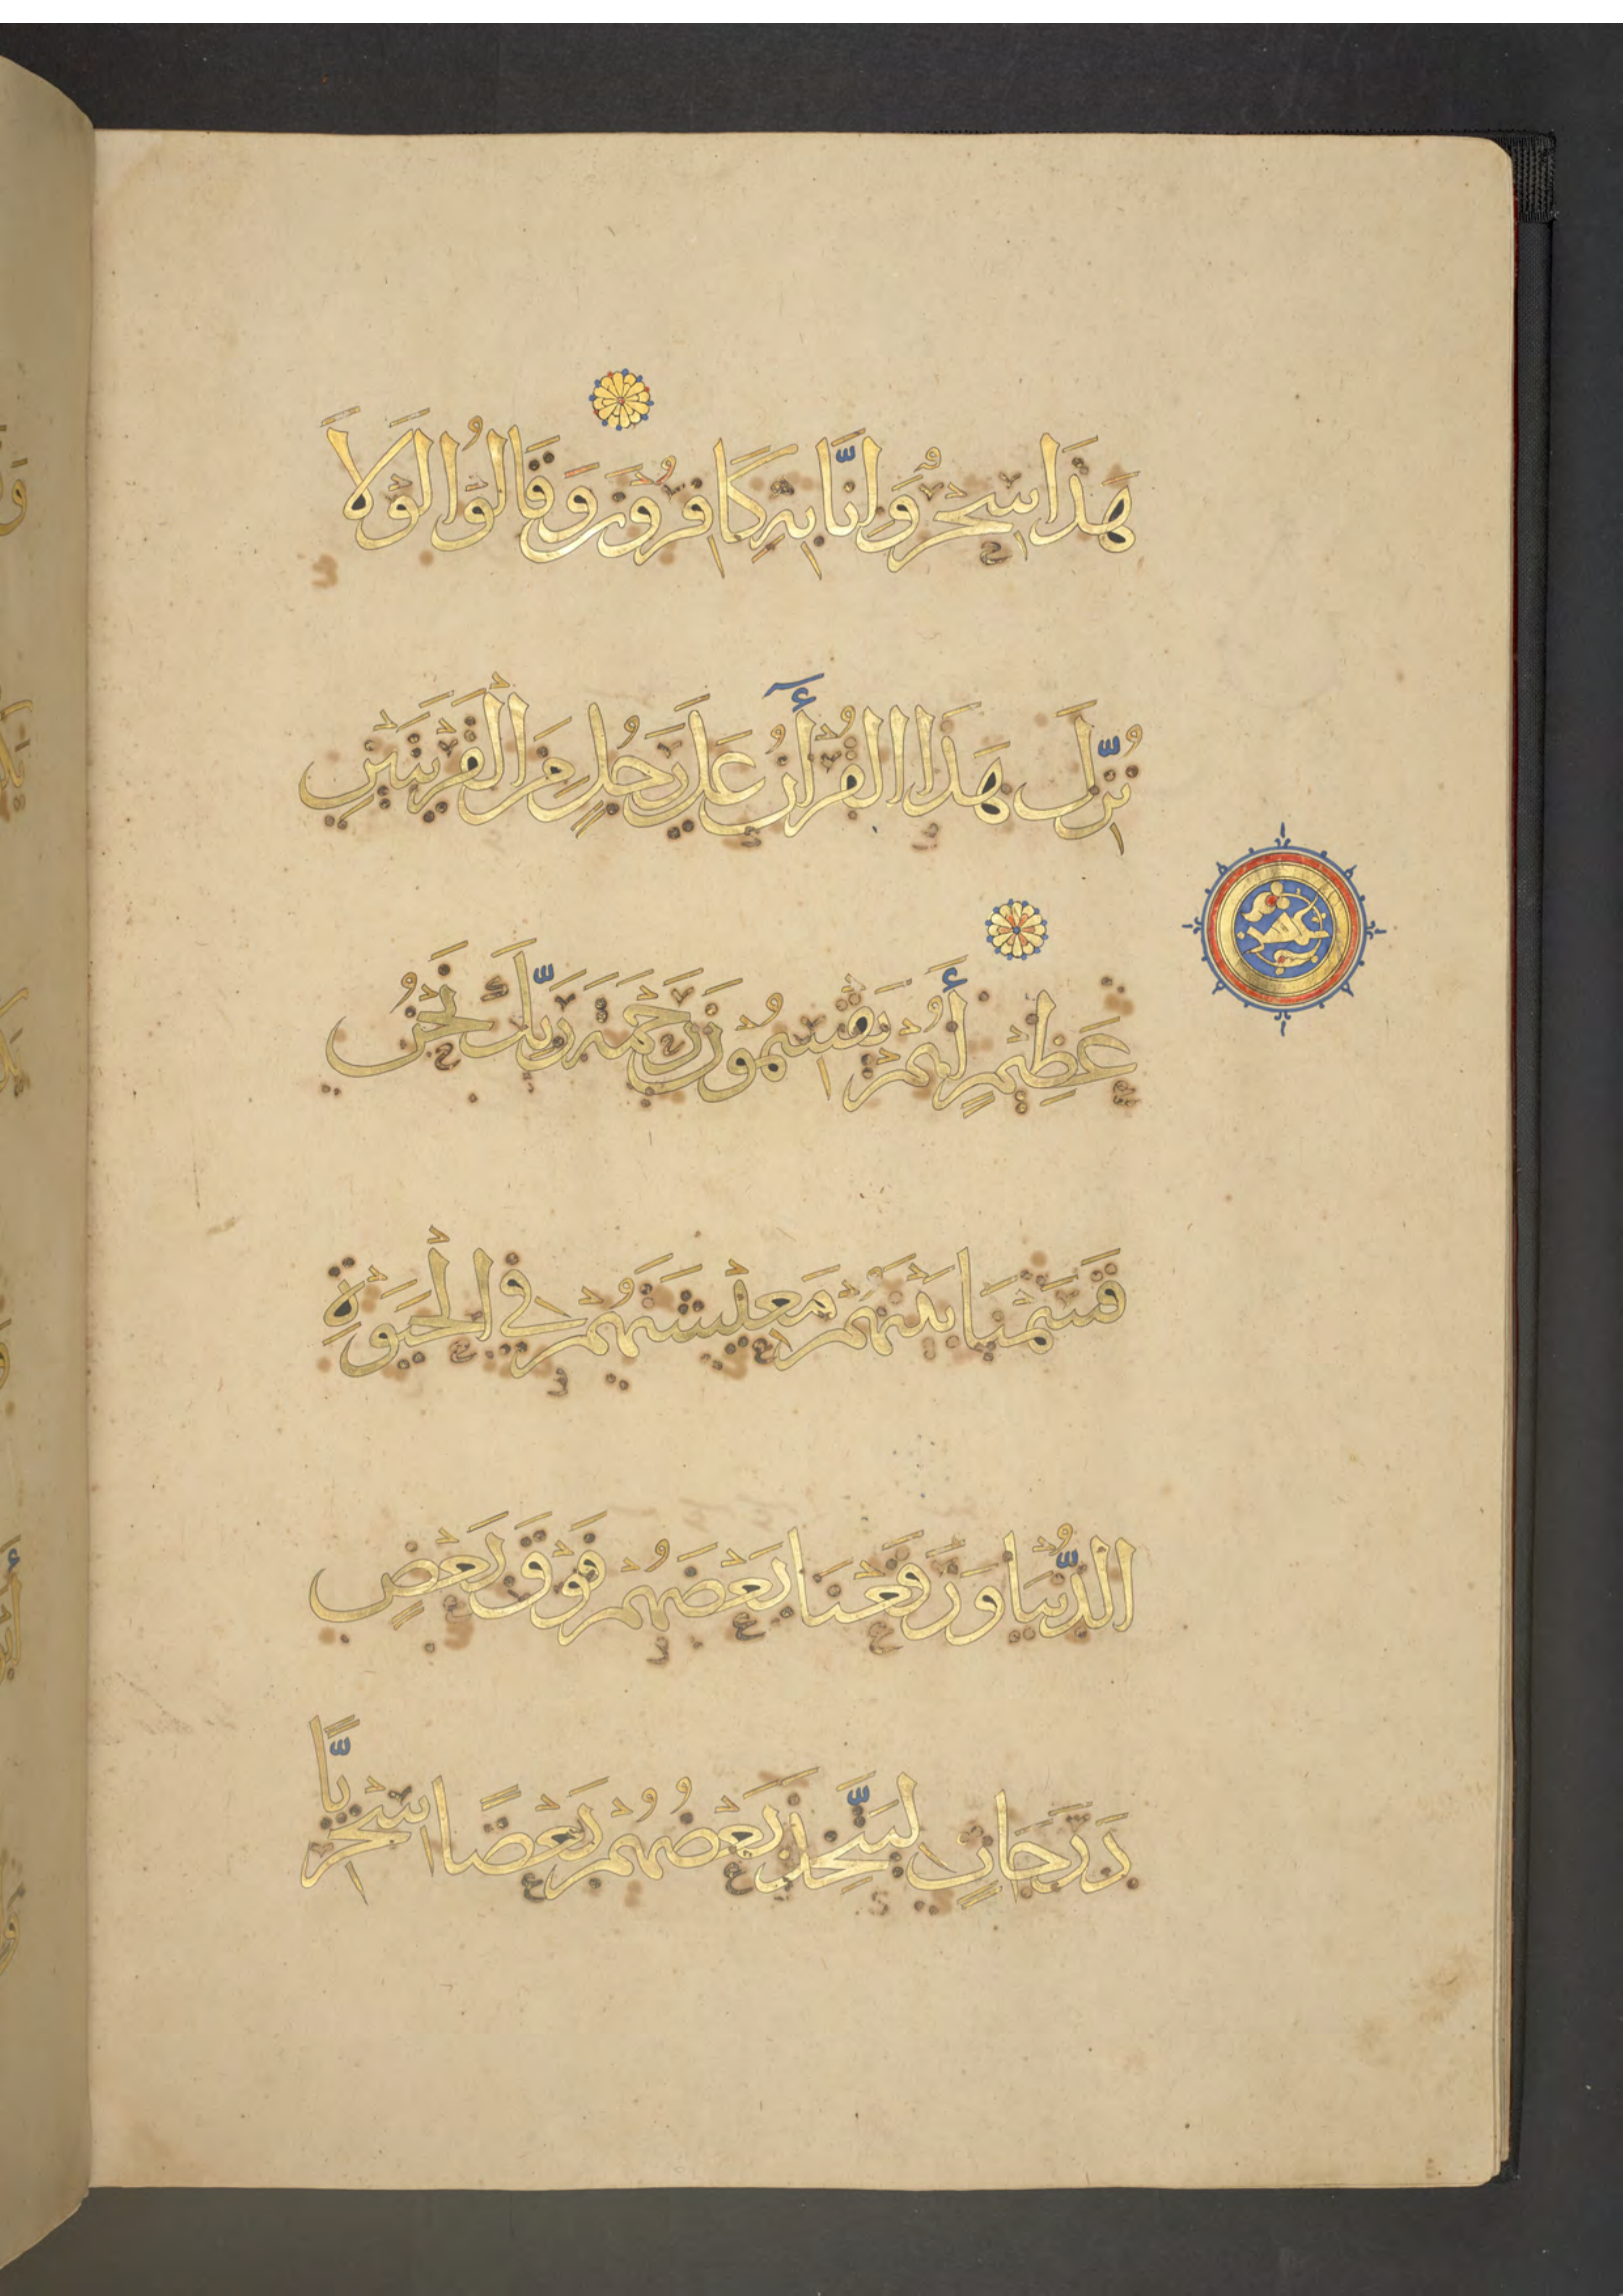 هَذَا سِحْرٌ وَإِنَّا بِهِ كَافِرُونَ وَقَالُوا لَوْلَا
نُزِّلَ هَذَا الْقُرْأَنُ عَلَى رَجُلٍ مِنَ الْقَرْيَتَيْنِ
عَظِيمٍ أَهُمْ يَقْسِمُونَ رَحْمَةَ رَبِّكَ نَحْنُ
قَسَمْنَا بَيْنَهُمْ مَعِيشَتَهُمْ فِي الْحَيَوةِ
الدُّنْيَا وَرَفَعْنَا بَعْضَهُمْ فَوْقَ بَعْضٍ
دَرَجَاتٍ لِيَتَّخِذَ بَعْضُهُمْ بَعْضًا سِخْرِيًّا